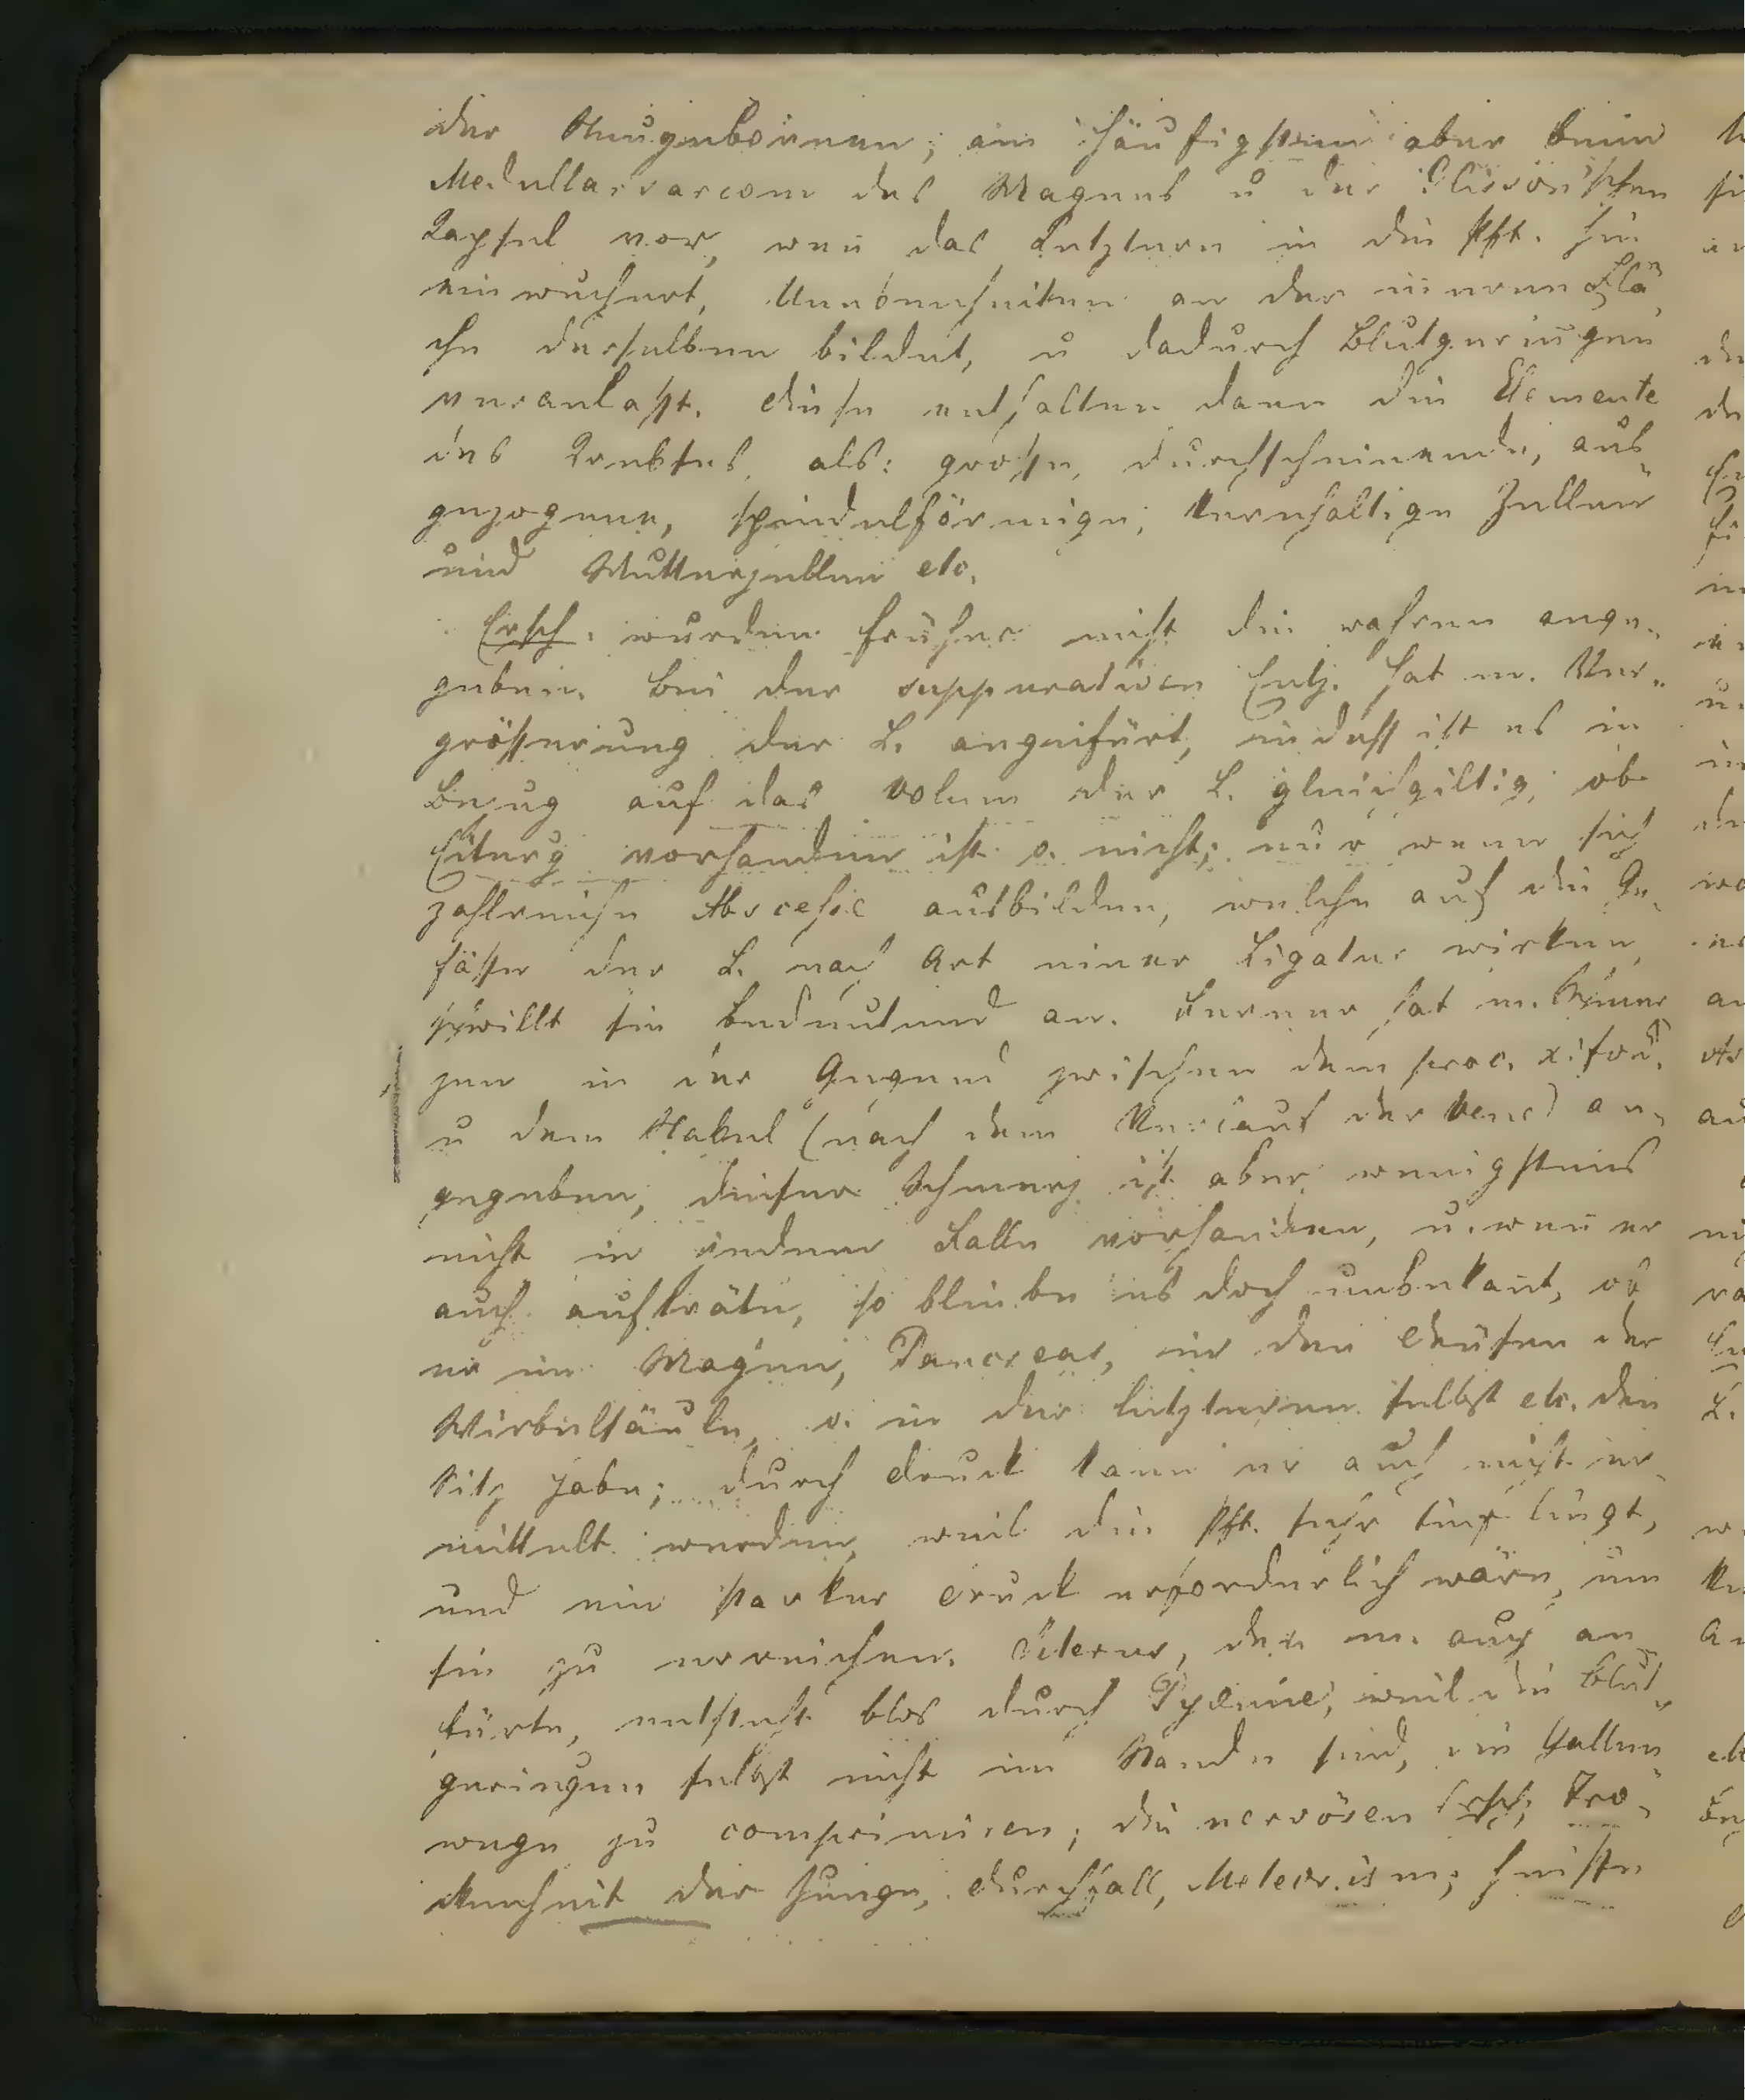 der Neugebornen; am häufigsten aber beim
Medullarsarcom des Magens u der Glisson'schen
Kapsel vor, wen̄ das Letztere in die Pft. hin
einwuchert, Unebenheiten an der in̄eren Flä„
che derselben bildet, u dadurch Blutgerin̄gen
veranlasst. Diese enthalten dann die Elemente
des Krebses, als: grosse, durchscheinende, aus„
gezogene, spindelförmige, kernhaltige Zellen
und Mutterzellen etc.
Ersch. wurden früher nicht die wahren ange„
geben. Bei der suppurativen Entz. hat m. Ver„
grösserung der L. angefürt, indess ist es in
Bezug auf das Volum der L. gleichgiltig, ob
Eiterg vorhanden ist o. nicht; nur wenn sich
zahlreiche Abscesse ausbilden, welche auf die Ge„
fässe der L. nach Art einer Ligatur wirken,
schwillt sie bedeutend an. Ferner hat m. Schmer
zen in der Gegend zwischen dem proc. xifoid.
u dem Nabel (nach dem Verlauf der Vene) an„
gegeben, dieser Schmerz ist aber wenigstens
nicht in jedem Falle vorhanden, u. wen̄ er
auch aufträte, so bliebe es doch unbekan̄t, ob
er im Magen, Pancreas, in den Drüsen der
Wirbelsäule, o. in der letzteren selbst etc. den
Sitz habe; durch Druck kann er auch nicht er„
mittelt werden, weil die Pft. sehr tief liegt,
und ein starker Druck erforderlich wäre, um
sie zu erreichen. Icterus, den m. auch an„
fürte, entsteht blos durch Pyämie, weil die Blut„
gerin̄gen selbst nicht im Stande sind, die Gallen„
wege zu comprimiren; die nervösen Ersch; Tro„
ckenheit der Zunge, Durchfall, Meteorism; heisse